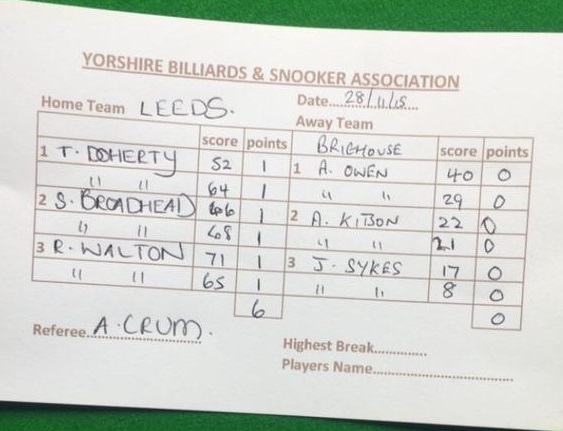 YORSHIRE BILLIARDS & SNOOKER ASSOCIATION
Home Team LEEDS. Date....28/11/15....
Away Team
score points BRIGHOUSE score points
1 T. DOHERTY 52 1 1 A. OWEN 40 0
" " 64 1 " " 29 0
2 S. BROADHEAD 66 1 2 A. KITSON 22 0
" " 68 1 " " 21 0
3 R. WALTON 71 1 3 J. SYKES 17 0
" " 65 1 " " 8 0
6 0
Referee A. CRUM.
Highest Break..............
Players Name......................................